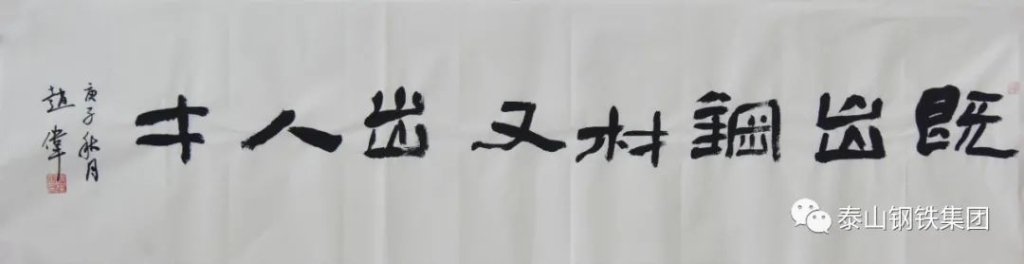 既出鋼材又出人才
庚子秋月
趙偉
泰山钢铁集团